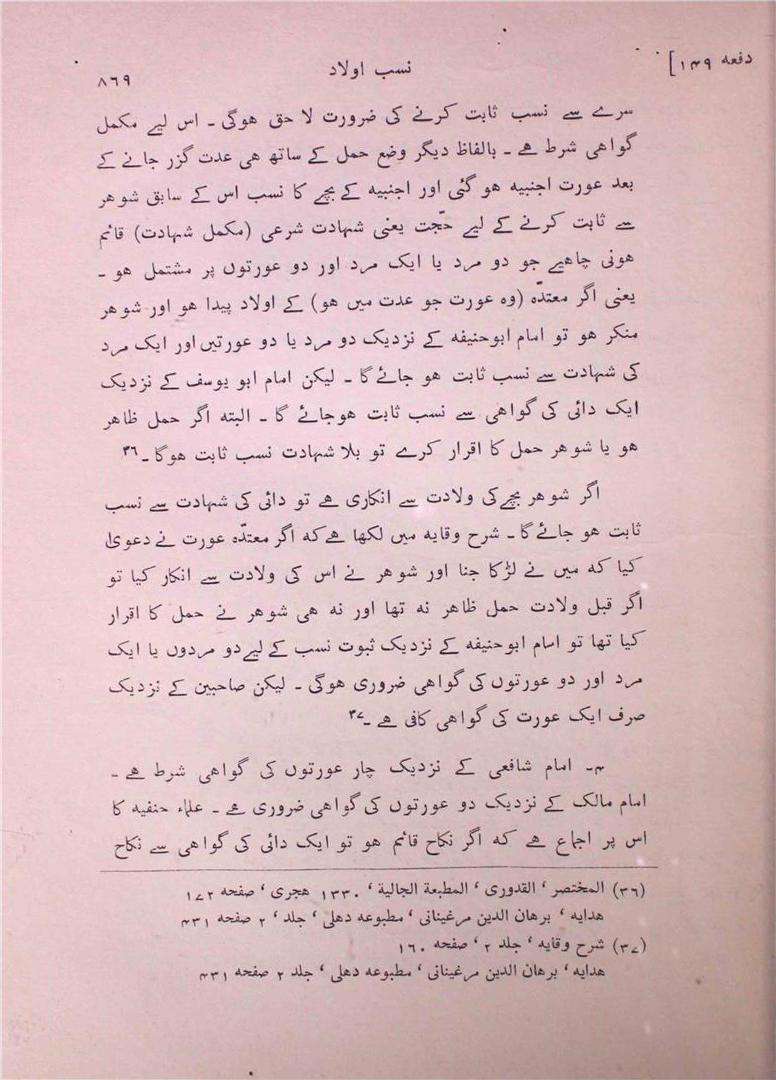 دفعه ۱۴۹]
نسب اولاد
۸۶۹
سرے سے نسب ثابت کرنے کی ضرورت لا حق ہوگی ۔ اس لیے مکمل
گواہی شرط ہے ۔ بالفاظ دیگر وضع حمل کے ساتھ ہی عدت گزر جانے کے
بعد عورت اجنبیہ ہو گئی اور اجنبیہ کے بچے کا نسب اس کے سابق شوہر
سے ثابت کرنے کے لیے حجّت یعنی شہادت شرعی (مکمل شہادت) قائم
ہونی چاہیے جو دو مرد یا ایک مرد اور دو عورتوں پر مشتمل ہو ۔
یعنی اگر معتدّہ (وہ عورت جو عدت میں ہو) کے اولاد پیدا ہو اور شوہر
منکر ہو تو امام ابوحنیفہ کے نزدیک دو مرد یا دو عورتیں اور ایک مرد
کی شہادت سے نسب ثابت ہو جائے گا ۔ لیکن امام ابو یوسف کے نزدیک
ایک دائی کی گواہی سے نسب ثابت ہوجائے گا ۔ البتہ اگر حمل ظاہر
ہو یا شوہر حمل کا اقرار کرے تو بلا شہادت نسب ثابت ہوگا ۔۳۶
اگر شوہر بچے کی ولادت سے انکاری ہے تو دائی کی شہادت سے نسب
ثابت ہو جائے گا ۔ شرح وقایہ میں لکھا ہے کہ اگر معتدّہ عورت نے دعویٰ
کیا کہ میں نے لڑکا جنا اور شوہر نے اس کی ولادت سے انکار کیا تو
اگر قبل ولادت حمل ظاہر نہ تھا اور نہ ہی شوہر نے حمل کا اقرار
کیا تھا تو امام ابوحنیفہ کے نزدیک ثبوت نسب کے لیے دو مردوں یا ایک
مرد اور دو عورتوں کی گواہی ضروری ہوگی ۔ لیکن صاحبین کے نزدیک
صرف ایک عورت کی گواہی کافی ہے ۔۳۷
۴۔ امام شافعی کے نزدیک چار عورتوں کی گواہی شرط ہے ۔
امام مالک کے نزدیک دو عورتوں کی گواہی ضروری ہے ۔ علماء حنفیہ کا
اس پر اجماع ہے کہ اگر نکاح قائم ہو تو ایک دائی کی گواہی سے نکاح
(۳۶) المختصر ، القدوری ، المطبعة الجالية ، ۱۳۳۰ ہجری ، صفحہ ۱۷۲
ہدایہ ، برھان الدین مرغینانی ، مطبوعہ دہلی ، جلد ، ۲ صفحہ ۴۳۱
(۳۷) شرح وقایہ ، جلد ۲ ، صفحہ ۱۶۰
ہدایہ ، برھان الدین مرغینانی ، مطبوعہ دہلی ، جلد ۲ صفحہ ۴۳۱